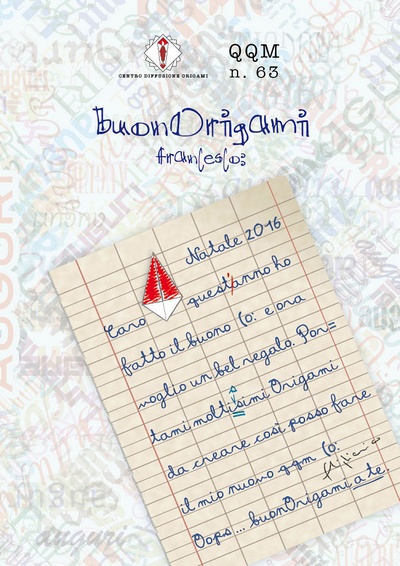 CENTRO DIFFUSIONE ORIGAMI
QQM
n. 63
buonOrigami
francesco:
Natale 2016
Caro quest'anno ho
fatto il buono (o: e ora
voglio un bel regalo. Por=
tami moltisimi Origami
da creare così posso fare
il mio nuovo qqm (o:
Oops... buonOrigami a te.
auguri
AUGURI